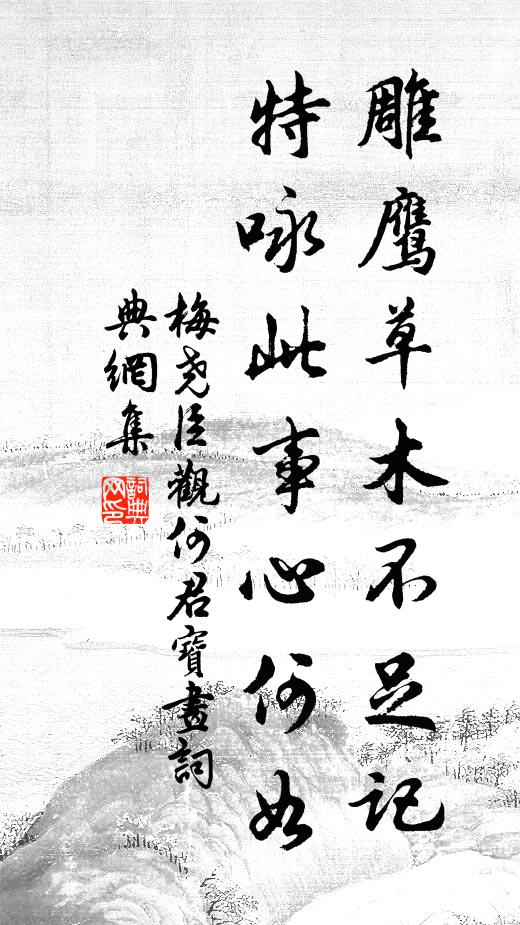 雕鹰草木不足记
特咏此事心何如
梅尧臣觀何君寶畫詞
典網集
詞典
网印